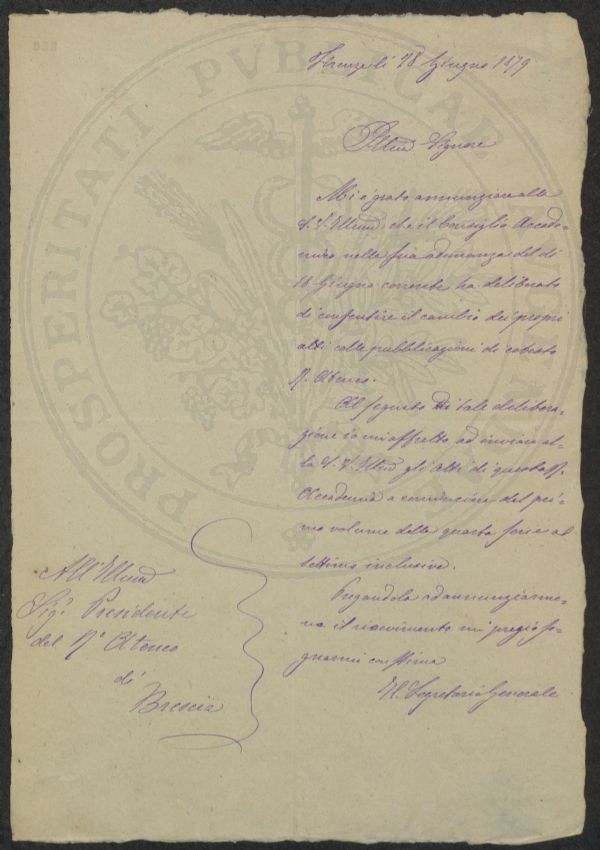 Firenze li 28 Giugno 1879
Illmo Signore
Mi è grato annunziare alla
S. V. Illma che il Consiglio Accade-
mico nella sua adunanza del dì
18 Giugno corrente ha deliberato
di consentire il cambio dei propri
atti colle pubblicazioni di cotesto
R. Ateneo.
Al seguito di tale delibera-
zione io mi affretto ad inviare al-
la S. V. Illma gli Atti di questa R.
Accademia a cominciare del pri-
mo volume della quarta serie al
settimo inclusive.
Pregandola ad annunziarme-
ne il ricevimento mi pregio se-
gnarmi con stima
Il Segretario Generale
All'Illmo
Sigr Presidente
del Ro Ateneo
di
Brescia
PROSPERITATI PVBLICAE